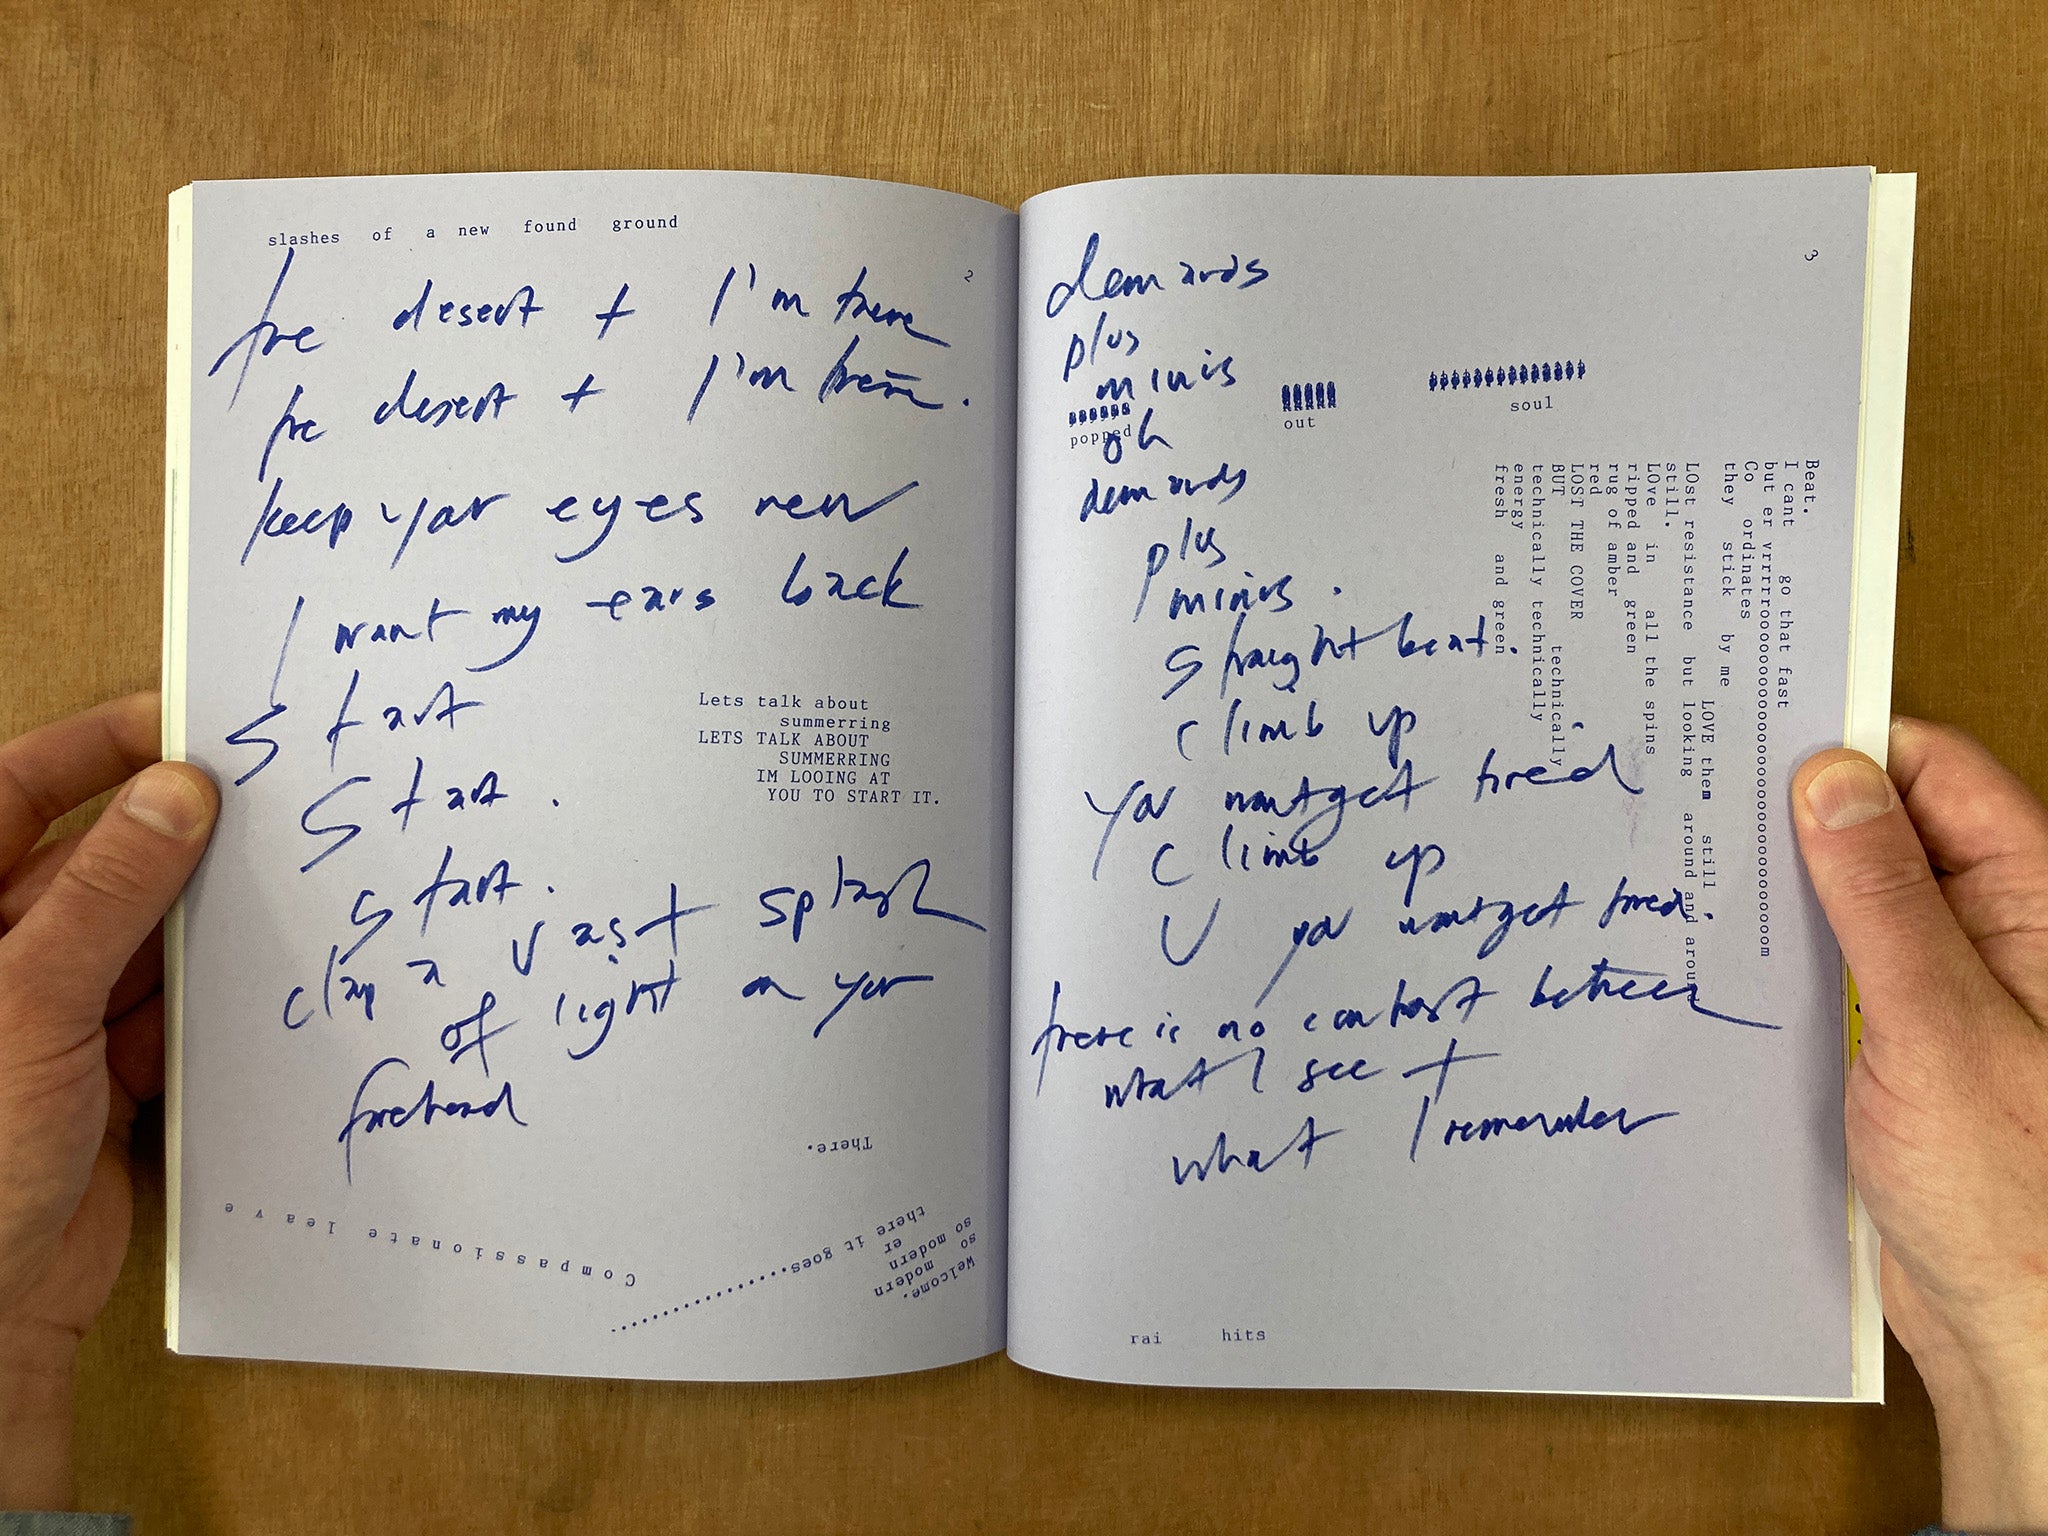 slashes of a new found ground
2
the desert + I'm there
the desert + I'm there.
keep your eyes new
I want my ears back
Start
Start.
Start.
clap a vast splash
of light on your
forehead
Lets talk about
summerring
LETS TALK ABOUT
SUMMERRING
IM LOOING AT
YOU TO START IT.
There.
Compassionate leave
Welcome.
modern
so
so modern
er
there it goes.....................
3
demands
plus
minis
oh
demands
plus
minis.
Straight beat.
climb up
you wont get tired
climb up
U you wont get tired.
there is no contrast between
what I see +
what I remember
popped
out
soul
Beat.
I cant go that fast
but er vrrrrooooooooooooooooooooooooooooooooom
Co ordinates
they stick by me
LOVE them still,
LOst resistance but looking around and around
still.
LOve in all the spins
ripped and green
rug of amber
red
LOST THE COVER
BUT technically
technically technically
energy
fresh and green
rai hits